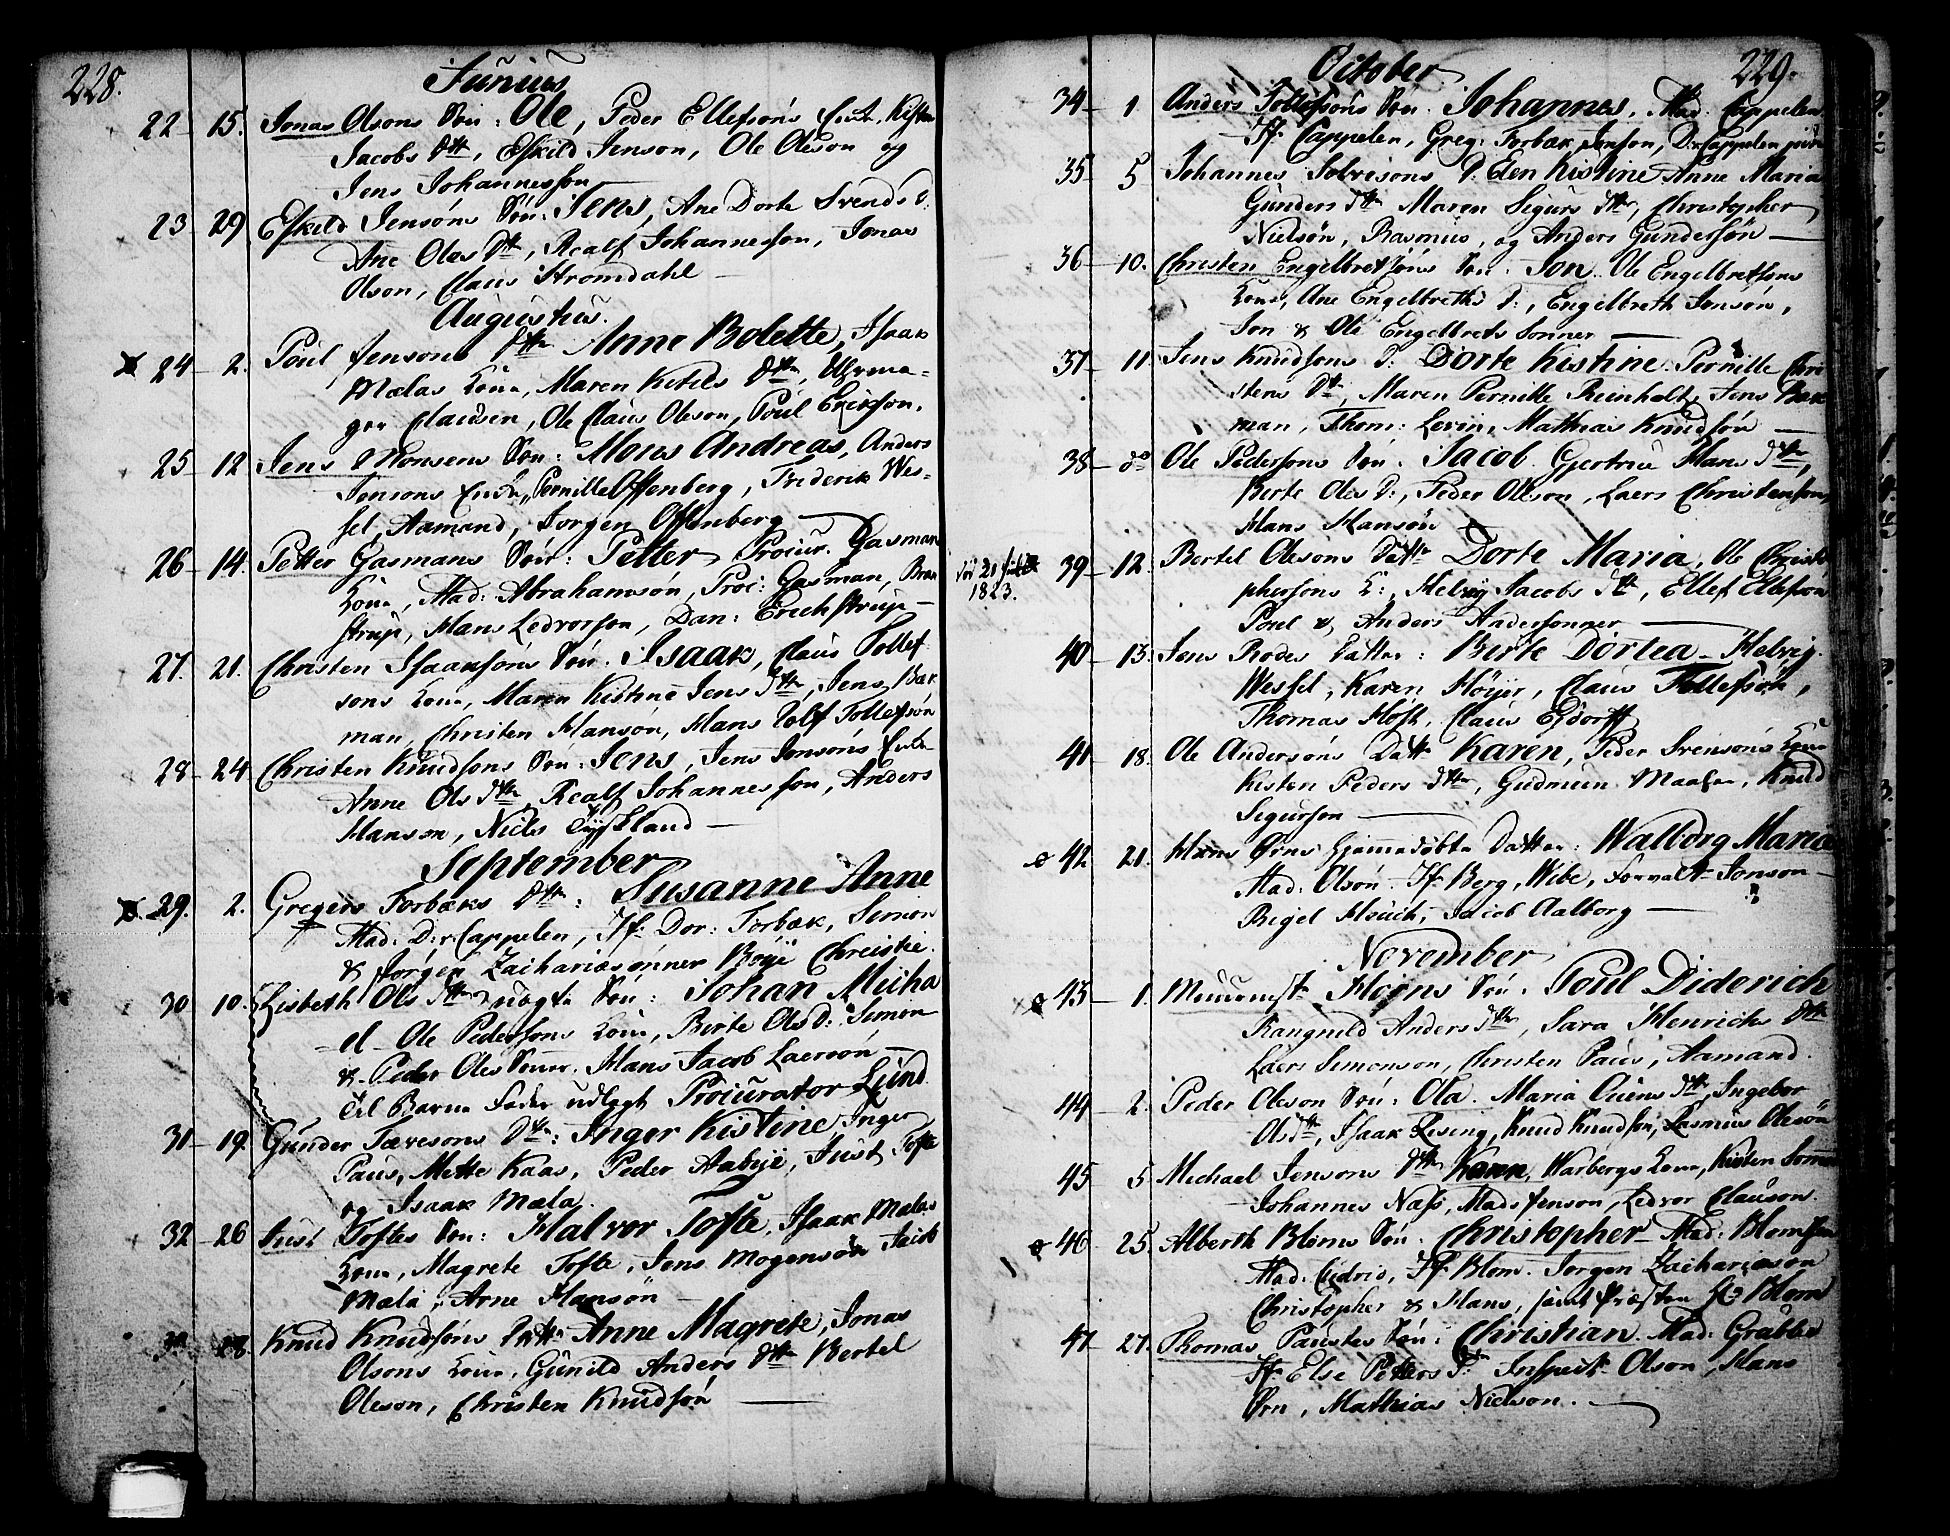 228.
Junius
22 – 15. Jonas Olsons Søn: Ole, Peder Ellefsøns Enke, Kisten
Jacobs Dtr, Eskild Jenson, Ole Oleson og
Jens Johannesson
23 29 Eskild Jensøns Søn: Jens, Ane Dorte Svends D:
Ane Oles Dtr, Realf Johannesson, Jonas
Olson, Claus Stromdahl –
Augustus.
24 – 2. Poul Jensons Dtr Anne Bolette, Isaak
Mælas Kone, Maren Ketels Dtr, Uhrma-
ger Clausen, Ole Claus Oleson, Poul Erikson.
25 – 12 Jens Monsens Søn: Mons Andreas, Anders
Jonsons Enke, Pernille Offenberg, Frederik Wes-
sel, Aamand, Jørgen Offenberg –
26 – 14. Petter Gasmans Søn: Petter, Procur. Gasmans
Kone, Mad: Abrahamsøn, Proc: Gasman, Bran
strup, Hans Ledvorson, Dan: Erichstrup –
27. 21. Christen Isaaksøns Søn: Isaak, Claus Tollef
sons Kone, Maren Kistine Jens Dtr, Jens Bak
man, Christen Hansøn, Hans Rolf Tollefsøn
28 – 24 Christen Knudsons Søn: Jens, Jens Jonsøns Enke
Anne Ols Dtr, Realf Johannesson, Anders
Hanson, Niels Tyskland –
September
29. 2. Gregers Forbæks Dtr: Susanne Anne
Mad: D:r Cappelen, Jf: Dor: Forbæk, Simon
& Jørgen Zachariæsønner Bøye Christie.
30 10. Lisbeth Ols Dtr uægte Søn: Johan Micha
– el – Ole Pedersons Kone, Birte Ols D: Simon
& Peder Oles Sønner. Hans Jacob Laersøn –
Til Barne Fader udlagt Procurator Lund
31 – 19. Gunder Taraldsons Dtr: Inger Kistine, Inger
Paus, Mette Kaas, Peder Aabye, Just Tofte
og Isaak Mæla.
32 – 26 Just Toftes Søn: Halvor Tofte, Isaak Mælas
Kone, Magrete Tofte, Jens Mogensøn Jacob
Mæla, Arne Hansøn –
28. Knud Knudsøns Datter Anne Magrete, Jonas
Olsons Kone, Gunild Anders Dtr Bertel
Oleson, Christen Knudsøn –
229.
October
34 – 1. Anders Tollefsøns Søn: Johannes, Mad: Cappelen
Jf: Cappelen, Greg: Forbæk, Jonson, D:r Cappelen junior
35 – 5 Johannes Solvesons D: Elen Kistine Anne Maria
Gunders Dtr Maren Sigurs Dtr, Christopher
Nielsøn, Rasmus, og Anders Gundersøn –
36 – 10. Christen Engelbretsøns Søn: Jon. Ole Engelbretsons
Kone, Ane Engelbreths D:, Engelbreth Jensøn,
Jon & Ole Engelbrets Sønner –
37 – 11. Jens Knudsons D: Dorte Kistine. Pernille Chri
stens Dtr, Maren Pernille Reinholt, Jens Bak
man, Thom: Levin, Mathias Knudsøn –
38 – do Ole Pedersons Søn: Jacob. Gjertrue Hans Dtr,
Berte Oles D:, Peder Oleson, Laers Christenson,
Hans Hansøn
1823.
39 – 12. Bertel Olesons Datter Dorte Maria, Ole Christo
phersons K:, Helvig Jacobs Dtr, Ellef Ellefson
Poul & Anders Andersønner –
40 – 13. Jens Rodes Datter: Birte Dortea – Helvig
Wessel, Karen Høyer, Claus Tollefsøn,
Thomas Høst, Claus Egdorff
41 – 18. Ole Andersøns Datter Karen, Peder Svensons Kone
Kisten Peders Dtr, Gudmun Maasøn, Knud
Sigurson –
42 21. Hans Ørns hjemmedøbte Datter: Walborg Maria
Mad: Olsøn. Jf: Berg, Wibe, Forvalt Jonson –
Bigel Houch, Jacob Aalborg –
November
43 – 1. Heins Søn: Poul Diderich
Rangnild Anders Dtr, Sara Henrichs Dtr
Laers Simonson, Christen Paus, Aamand.
44 – 2. Peder Oleson Søn: Ola. Maria Auens Dtr, Ingebor
Ols Dtr, Isaak Lising, Knud Knudsøn, Rasmus Olesøn
45 5 Michael Jensons Dtr Karen, Warbergs Kone, Kisten
Johannes Næss, Mads Jenson, Ledvor Clauson
46 – 25. Alberth Bloms Søn: Christopher – Mad: Blom
Mad: Jf: Blom. Jørgen Zachariæsøn
Christopher & Hans, samt Præsten H: Blom
47 – 27. Thomas Paustes Søn: Christian. Mad: Grubbe
Jf: Else Petters D: Inspect: Olson, Hans
Ørn, Mathias Nielson. –